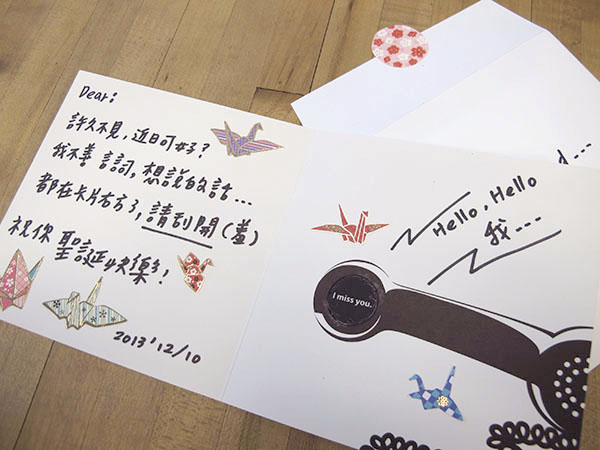 Dear:
許久不見,近日可好?
我不善言詞,想說的話...
都在卡片右方了,請刮開(羞)
祝你聖誕快樂!
2013'12/10
Hello, Hello
我....
I miss you.